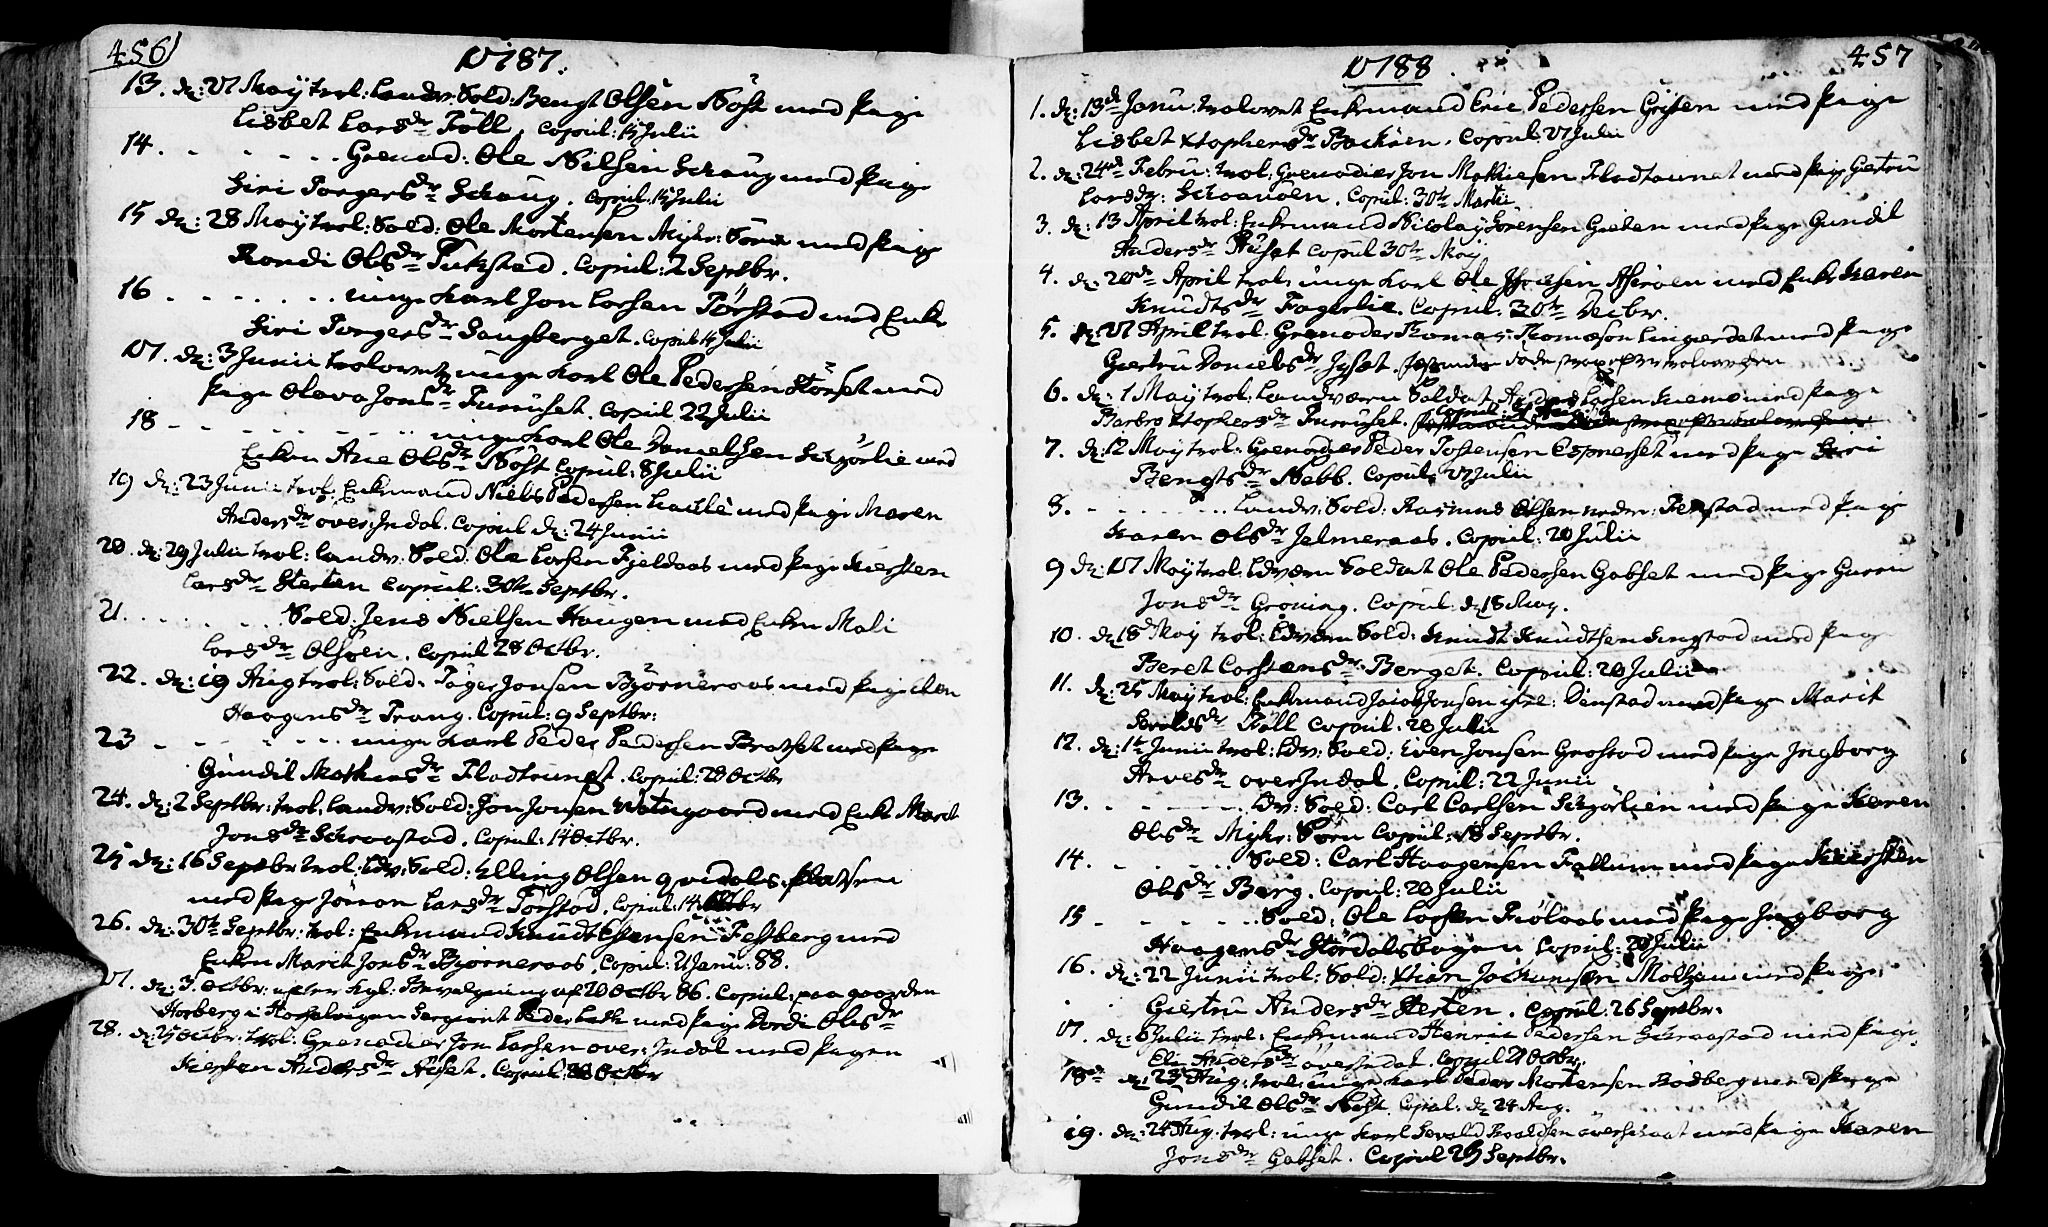 456
1787.
13. d: 27 Maÿ trol: Landv: Sold: Bengt Olsen Nöst med Pige
Lisbet LarsdrFöll, Copul: 15 Julii
14. - - - - - - Grenad: Ole Nilsen Schaug med Pige
Siri Torgersdr Schaug. Copul: 15 Julii
15 d: 28 Maÿ trol: Sold: Ole Mortensen Myhr: Sörn med Pige
Randi Olsdr Tukstad. Copul: 2 Septbr.
16 - - - - - - unge Karl Jon Larsen Törstad med Enke
Siri Torgersdr Saugberget. Copul: 15 Julii
17. d: 3 Junii trolovet unge Karl Ole Pedersen Störset med
Pige Olava Jonsdr Furuset. Copul 22 Julii
18 - - - - - - - unge Karl Ole Danielsen Schjörlie med
Enken Ane Olsdr Nöst Copul: 8 Julii
19 d: 23 Junii trol: Enkemand Niels Pedersen med Pige Maren
Andersdr over: Indal. Copul d: 24 Junii
20. d: 29 Julii trol: Landv: Sold: Ole Larsen Fjeldaas med Pige Kiersten
Larsdr Sterten Copul: 30te Septbr.
21. - - - - - - Sold: Jens Nielsen Haugen med Enken Mali
Larsdr Olsöen. Copul 28 Octbr.
22. d: 19 Aug trol: Sold. Töger Jonsen Björneraas med Pige Elen
Haagensdr Trang. Copul: 9 Septbr:
23 - - - - - - unge Karl Peder Pedersen Bratset med Pige
Gundil Mathiasdr Fladtrunet. Copul: 28 Octbr
24. d: 2 Septbr: trol: Landv: Sold: Jon Jonsen Vetngaard med Enke Marit
Jonsdr Schraastad. Copul: 14 Octbr.
25 d: 16 Septbr trol: Ldv: Sold: Elling Olsen qvidals. platsen
med Pige Jöron Larsdr Törstad. Copul: 14 Octbr
26. d: 30te Septbr: trol: Enkemand Knudt Estensen Fessberg med
Enken Marit Jonsdr Bjorneraas. Copul: 21 Janu: 88.
27. d: 3. Octbr: efter Kgl: Bevalgning af 20 Octbr 86. Copul: paa gaarden
Horberg i Sergiant Peder med Pige Dordi Olsdr
28. d: 25 Octbr: trol: Grenadier Jon Larsen over: Indal med Pigen
Kiersten Andersdr Aüset. Copul: 28 Octbr
1788.
457
1. d: 13de Janu: trolovet Enkemand Eric Pedersen Gösen med Pige
Lisbet Xtophersdr Backöen. Copul. 27 Julii
2. d: 24de Febru: trol: Grenadier Jon Mathiesen Fladtaunet med Pige Giertru
Larsdr: Schoanöen. Copul: 30te Martii
3. d: 13 April trol: Enkemand Nicolaÿ Sörensen Grüten med Pige Gundil
Andersdr Aüset Copul 30te Maÿ
4. d: 20de April trol: unge Karl Ole Aftröen med Enke Karen
Knudtsdr Fagerlie. Copul. 30te Decbr.
5. d: 27 April trol: Grenader Thomas Thomæson Lingerdet med Pige
Giertru Danielsdr Jyset.
6. d: 1 Maÿ trol: Landværn Soldat Anders Larsen Kiemo med Pige
Barbro Xtophersdr Furuset. Copul: Aug:
7. d: 12 Maÿ trol: Grenadier Peder Tostensen Espnerset med Pige Siri
Bengtsdr Nebb. Copul: 27 Julii
8. - - - - - - Landv: Sold: Rasmus Olsen neder: Ferstad med Pige
Karen Olsdr Jelmeraas. Copul: 20 Julii
9 d: 17 Maÿ trol: Ldværn Soldat Ole Pedersen Gabset med Pige Guru
Jonsdr Gröning. Copul: d 18 May.
10. d: 18 Maÿ trol: Ldværn Sold: Knudt Knudtsen Lingstad med Pige
Beret Carstensdr Berget. Copul: 20 Julii
11. d: 25 Maÿ trol: Enkemand Jacob Jonsen iste: Dinstad med Pige Marit
Sevaldsdr Föll Copul: 20 Julii
12. d: 1te Junii trol: Ldv: Sold: Even Jonsen Grostad med Pige Ingborg
Arvesdr over Indal. Copul: 22 Junii
13. - - - - - - Ldv: Sold: Carl Carlsen Schjörlien med Pige Karen
Olsdr Myhr: Sörn Copul: 18 Septbr.
14. - - - - - Sold: Carl Haagensen Fallum med Pige Kiersten
Olsdr Berg. Copul: 20 Julii
15 - - - - - - Sold: Ole Larsen Fiölaas med Pige Ingborg
Haagensdr Stördalsbogen Copul: 20 Julii
16. d: 22 Junii trol: Sold: Xtian Jochumsen Molzau med Pige
Giertru Andersdr Sterten. Copul: 26 Septbr.
17. d: 6 Julii trol: Enkemand Henric Pedersen Schraastad med Pige
Eli Andersdr overIndal. Copul 21 Octbr.
18de d: 23 Aug: trol: unge Karl Peder Mortensen Rösberg med Pige
Gundil Olsdr Nöst. Copul: d: 24 Aug.
19. d: 24 Aug: trol: unge Karl Sevald Roaldsen med Pige Karen
Jonsdr Gabset. Copul 29 Septbr.